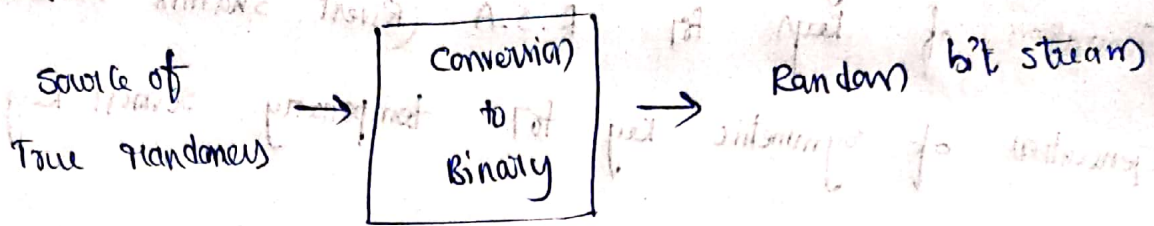 Source of
True randomness
Conversion
to
Binary
Random bit stream